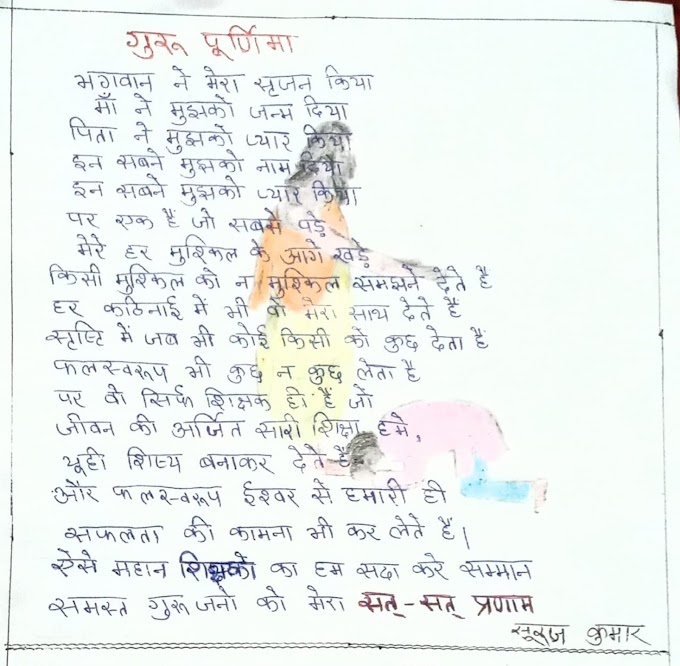 गुरू पूर्णिमा
भगवान ने मेरा सृजन किया
माँ ने मुझको जन्म दिया
पिता ने मुझको प्यार किया
इन सबने मुझको नाम दिया
इन सबने मुझको प्यार किया
पर एक है जो सबसे पड़े
मेरे हर मुश्किल के आगे खड़े
किसी मुश्किल को न मुश्किल समझने देते हैं
हर कठिनाई में भी वो मेरा साथ देते हैं
सृष्टि में जब भी कोई किसी को कुछ देता है
फलस्वरूप भी कुछ न कुछ लेता है
पर वो सिर्फ शिक्षक ही हैं जो
जीवन की अर्जित सारी शिक्षा हमे,
यूही शिष्य बनाकर देते हैं
और फलस्वरूप ईश्वर से हमारी ही
सफलता की कामना भी कर लेते हैं।
ऐसे महान शिक्षको का हम सदा करे सम्मान
समस्त गुरूजनो को मेरा सत्-सत् प्रणाम
सूरज कुमार